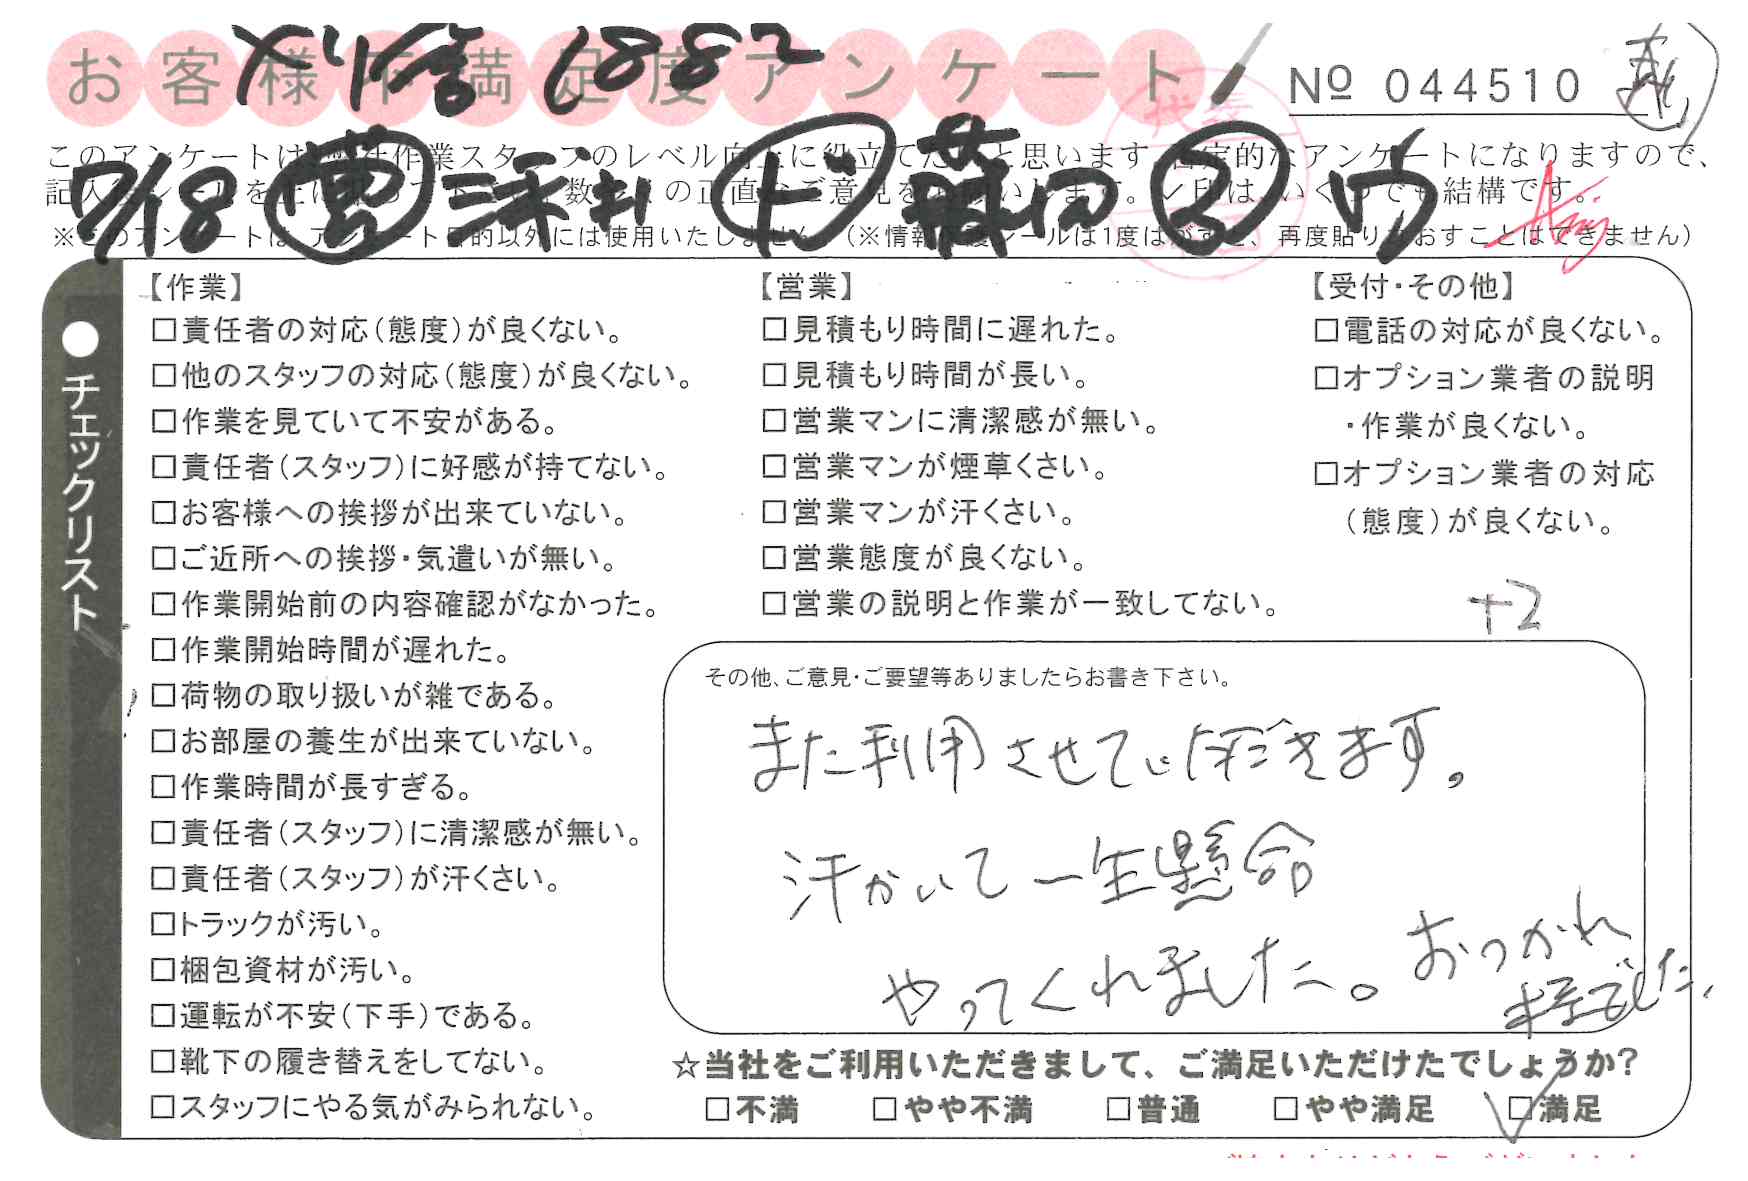 お客様不満足度アンケート
6882
№ 044510
このアンケートは
記入
7/18
※このアンケートは、アンケート目的以外には使用いたしません。(※情報保護シールは1度はがすと、再度貼りなおすことはできません)
●チェックリスト
【作業】
□責任者の対応(態度)が良くない。
□他のスタッフの対応(態度)が良くない。
□作業を見ていて不安がある。
□責任者(スタッフ)に好感が持てない。
□お客様への挨拶が出来ていない。
□ご近所への挨拶・気遣いが無い。
□作業開始前の内容確認がなかった。
□作業開始時間が遅れた。
□荷物の取り扱いが雑である。
□お部屋の養生が出来ていない。
□作業時間が長すぎる。
□責任者(スタッフ)に清潔感が無い。
□責任者(スタッフ)が汗くさい。
□トラックが汚い。
□梱包資材が汚い。
□運転が不安(下手)である。
□靴下の履き替えをしてない。
□スタッフにやる気がみられない。
【営業】
□見積もり時間に遅れた。
□見積もり時間が長い。
□営業マンに清潔感が無い。
□営業マンが煙草くさい。
□営業マンが汗くさい。
□営業態度が良くない。
□営業の説明と作業が一致してない。
【受付・その他】
□電話の対応が良くない。
□オプション業者の説明
・作業が良くない。
□オプション業者の対応
(態度)が良くない。
+2
その他、ご意見・ご要望等ありましたらお書き下さい。
また利用させていただきます。
汗かいて一生懸命
やってくれました。おつかれ
様でした。
☆当社をご利用いただきまして、ご満足いただけたでしょうか?
□不満 □やや不満 □普通 □やや満足 ☑満足